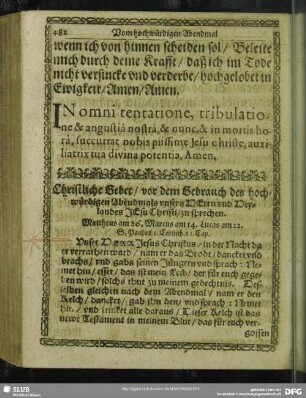 482 Vom hochwürdigen Abendmal
wenn ich von hinnen scheiden sol / Beleite
mich durch deine Krafft / daß ich im Tode
nicht versincke vnd verderbe / hochgelobet in
Ewigkeit / Amen / Amen.
IN omni tentatione, tribulatio-
ne & angustiâ nostrâ, & nunc, & in mortis ho-
râ, succurrat nobis piissime Jesu christe, auxi-
liatrix tua divina potentia, Amen.
Christliche Gebet / vor dem Gebrauch des hoch-
würdigen Abendmals vnsers HErrn vnd Hey-
landes JEsu Christi / zu sprechen.
Mattheus am 26. Marcus am 14. Lucas am 22.
S. Paulus 1. Corinth. 11. Cap.
Vnser HErr Jesus Christus / in der Nacht da
er verrathen ward / nam er das Brodt / dancket vnd
brachs / vnd gabs seinen Jüngern vnd sprach: Ne-
met hin / esset / das ist mein Leib / der für euch gege-
ben wird / solchs thut zu meinem gedechtnis. Des-
selben gleichen nach dem Abendmal / nam er den
Kelch / dancket / gab ihn den / vnd sprach: Nemet
hin / vnd trincket alle daraus / Dieser Kelch ist das
newe Testament in meinem Blut / das für euch ver-
gossen
SLUB
DFG